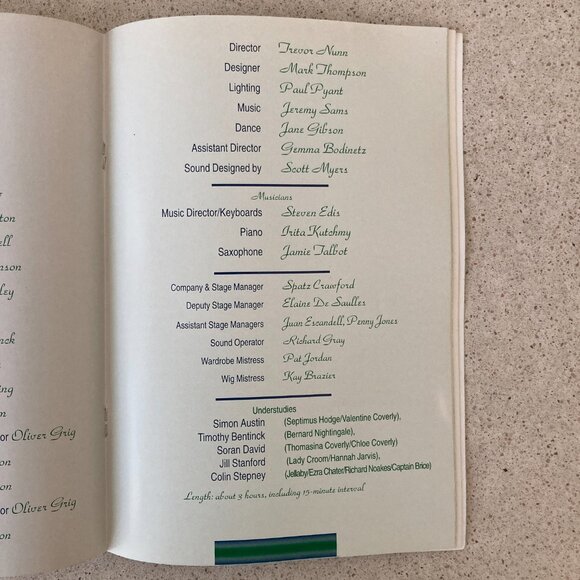 Director Trevor Nunn
Designer Mark Thompson
Lighting Paul Pyant
Music Jeremy Sams
Dance Jane Gibson
Assistant Director Gemma Bodinetz
Sound Designed by Scott Myers
Musicians
Music Director/Keyboards Steven Edis
Piano Irita Kutchmy
Saxophone Jamie Talbot
Company & Stage Manager Spatz Crawford
Deputy Stage Manager Elaine De Saulles
Assistant Stage Managers Juan Escandell, Penny Jones
Sound Operator Richard Gray
Wardrobe Mistress Pat Jordan
Wig Mistress Kay Brazier
Understudies
Simon Austin (Septimus Hodge/Valentine Coverly),
Timothy Bentinck (Bernard Nightingale),
Soran David (Thomasina Coverly/Chloe Coverly)
Jill Stanford (Lady Croom/Hannah Jarvis),
Colin Stepney (Jellaby/Ezra Chater/Richard Noakes/Captain Brice)
Length: about 3 hours, including 15-minute interval
or Oliver Grig
or Oliver Grig